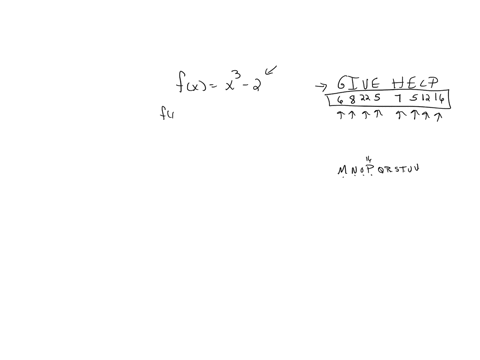 f(x) = x³ - 2
→ GIVE HELP
6 8 22 5 7 5 12 16
f(
16
M N O P Q R S T U V